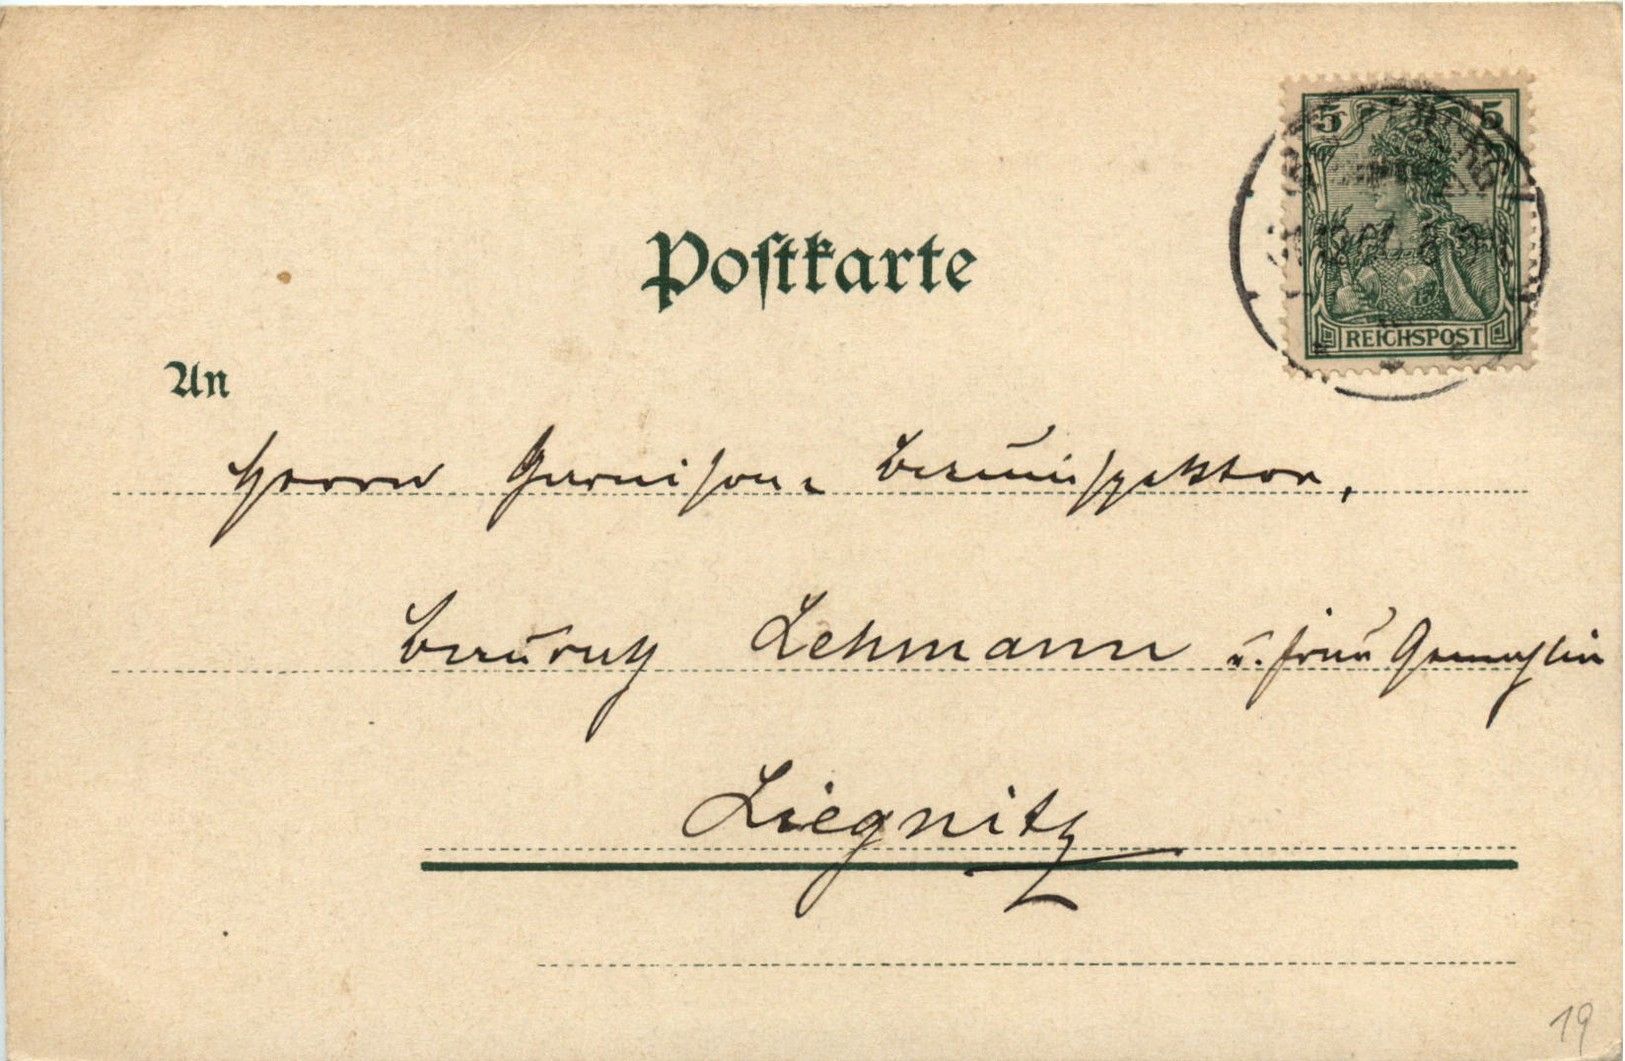 5 5
REICHSPOST
Postkarte
An
Herrn Garnison- Bauinspektor,
Baurath Lehmann u. Frau Gemahlin
Liegnitz
19